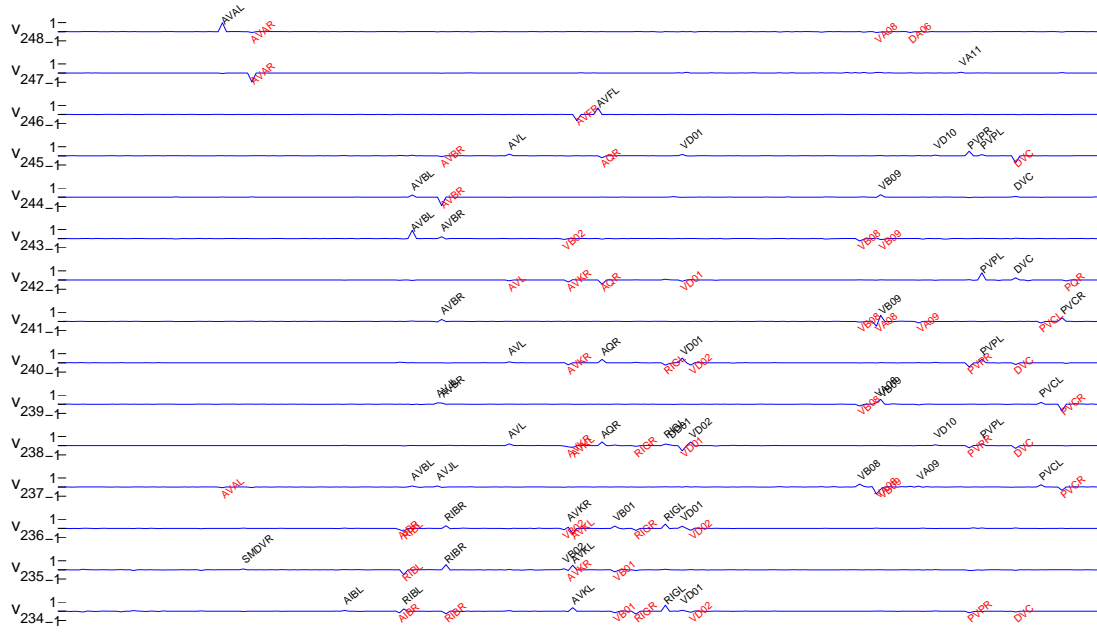 v248 1 -1 AVAL AVAR VA08 DA06
v247 1 -1 AVAR VA11
v246 1 -1 AVFR AVFL
v245 1 -1 AVBR AVL AQR VD01 VD10 PVPR PVPL DVC
v244 1 -1 AVBL AVBR VB09 DVC
v243 1 -1 AVBL AVBR VB02 VB08 VB09
v242 1 -1 AVL AVKR AQR VD01 PVPL DVC PQR
v241 1 -1 AVBR VB08 VA08 VB09 VA09 PVCL PVCR
v240 1 -1 AVL AVKR AQR RIGL VD01 VD02 PVPR PVPL DVC
v239 1 -1 AVJL AVBR VB08 VA08 VB09 PVCL PVCR
v238 1 -1 AVL AVKR AVKL AQR RIGR RIGL VD01 VD02 VD10 PVPR PVPL DVC
v237 1 -1 AVAL AVBL AVJL VB08 VA08 VB09 VA09 PVCL PVCR
v236 1 -1 RIBL RIBR VB02 AVKR AVKL VB01 RIGR RIGL VD01 VD02
v235 1 -1 SMDVR RIBL RIBR VB02 AVKR AVKL VB01
v234 1 -1 AIBL AIBR RIBL RIBR AVKL VB01 RIGR RIGL VD01 VD02 PVPR DVC